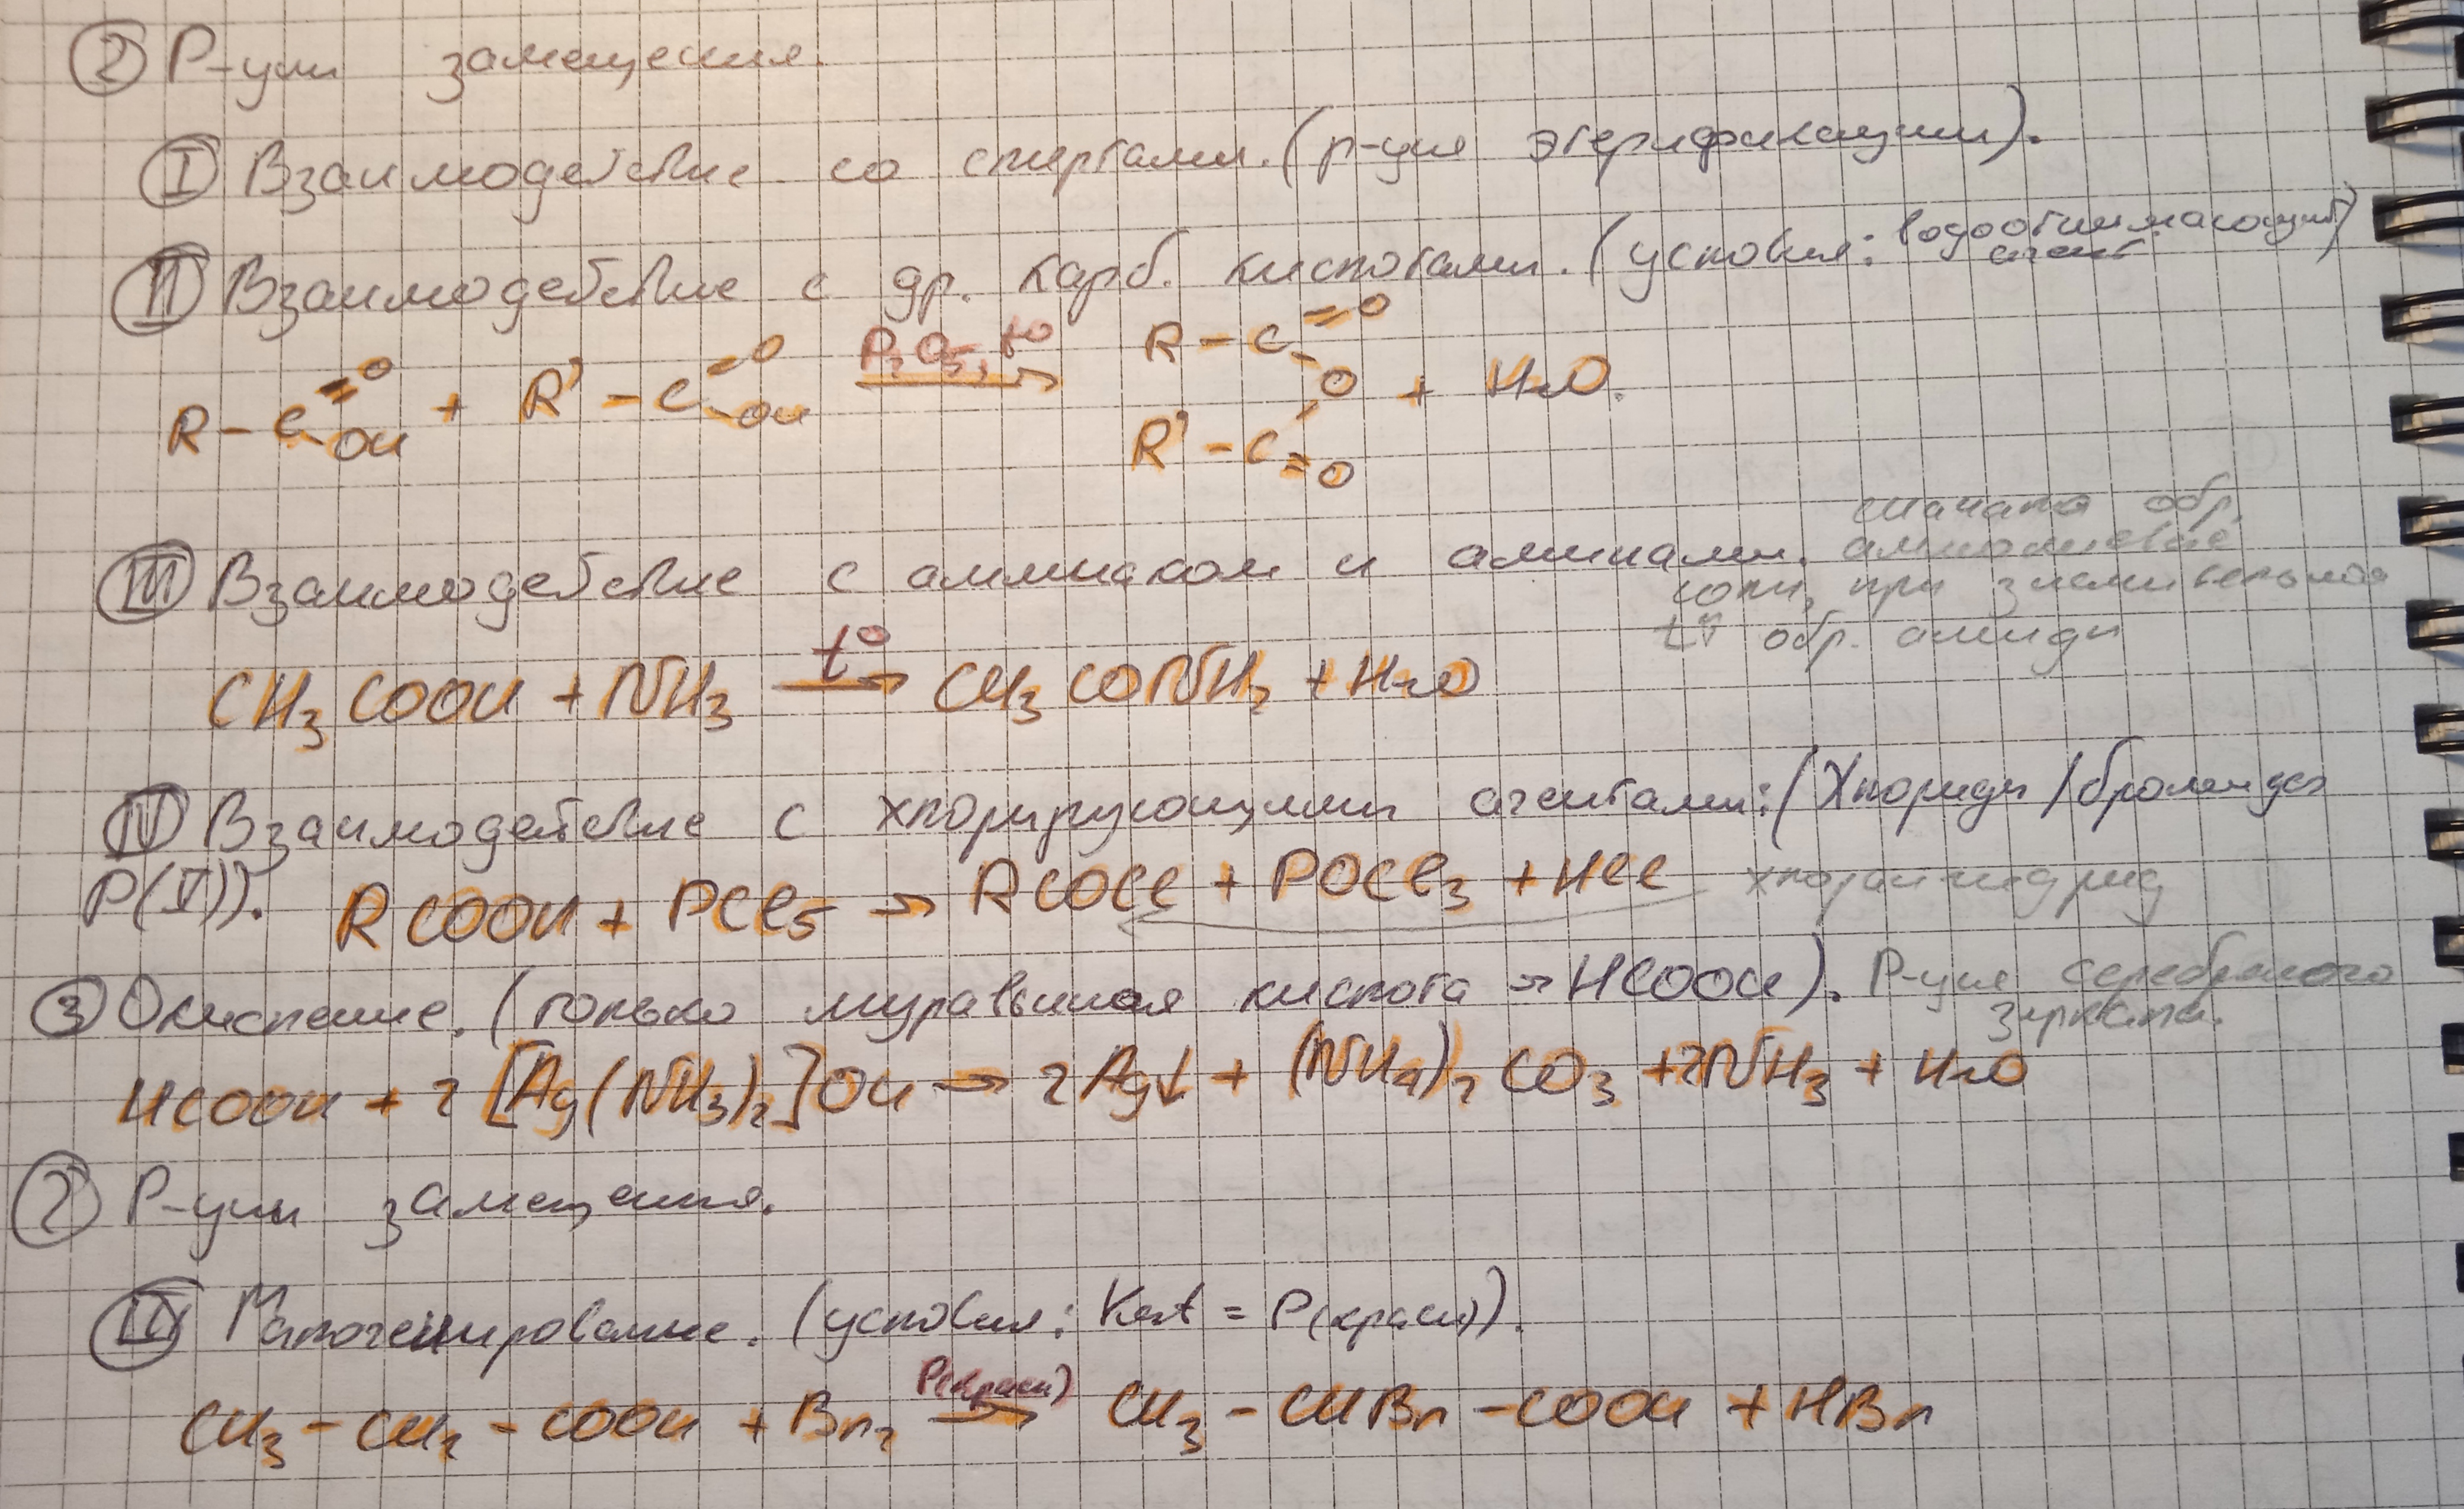 ② Р-ции замещения.
Ⓘ Взаимодействие со спиртами. (р-ция этерификации).
Ⓘ︎Ⓘ Взаимодействие с др. карб. кислотами. (условия: водоотнимающий агент)
R-C(=O)-OH + R'-C(=O)-OH P₂O₅, t° → R-C(=O)-O-C(=O)-R' + H₂O.
III Взаимодействие с аммиаком и аминами. сначала обр.
аммониевые
соли, при значительной
t↑ обр. амиды
CH₃COOH + NH₃ t° → CH₃CONH₂ + H₂O
IV Взаимодействие с хлорирующими агентами: (Хлориды / бромиды
P(V)). RCOOH + PCl₅ → RCOCl + POCl₃ + HCl хлорангидрид
③ Окисление. (только муравьиная кислота → HCOOH). Р-ция серебряного
зеркала.
HCOOH + 2[Ag(NH₃)₂]OH → 2Ag↓ + (NH₄)₂CO₃ + 2NH₃ + H₂O
② Р-ции замещения.
III Галогенирование. (условия: Kat = P(красн)).
CH₃-CH₂-COOH + Br₂ P(красн) → CH₃-CHBr-COOH + HBr